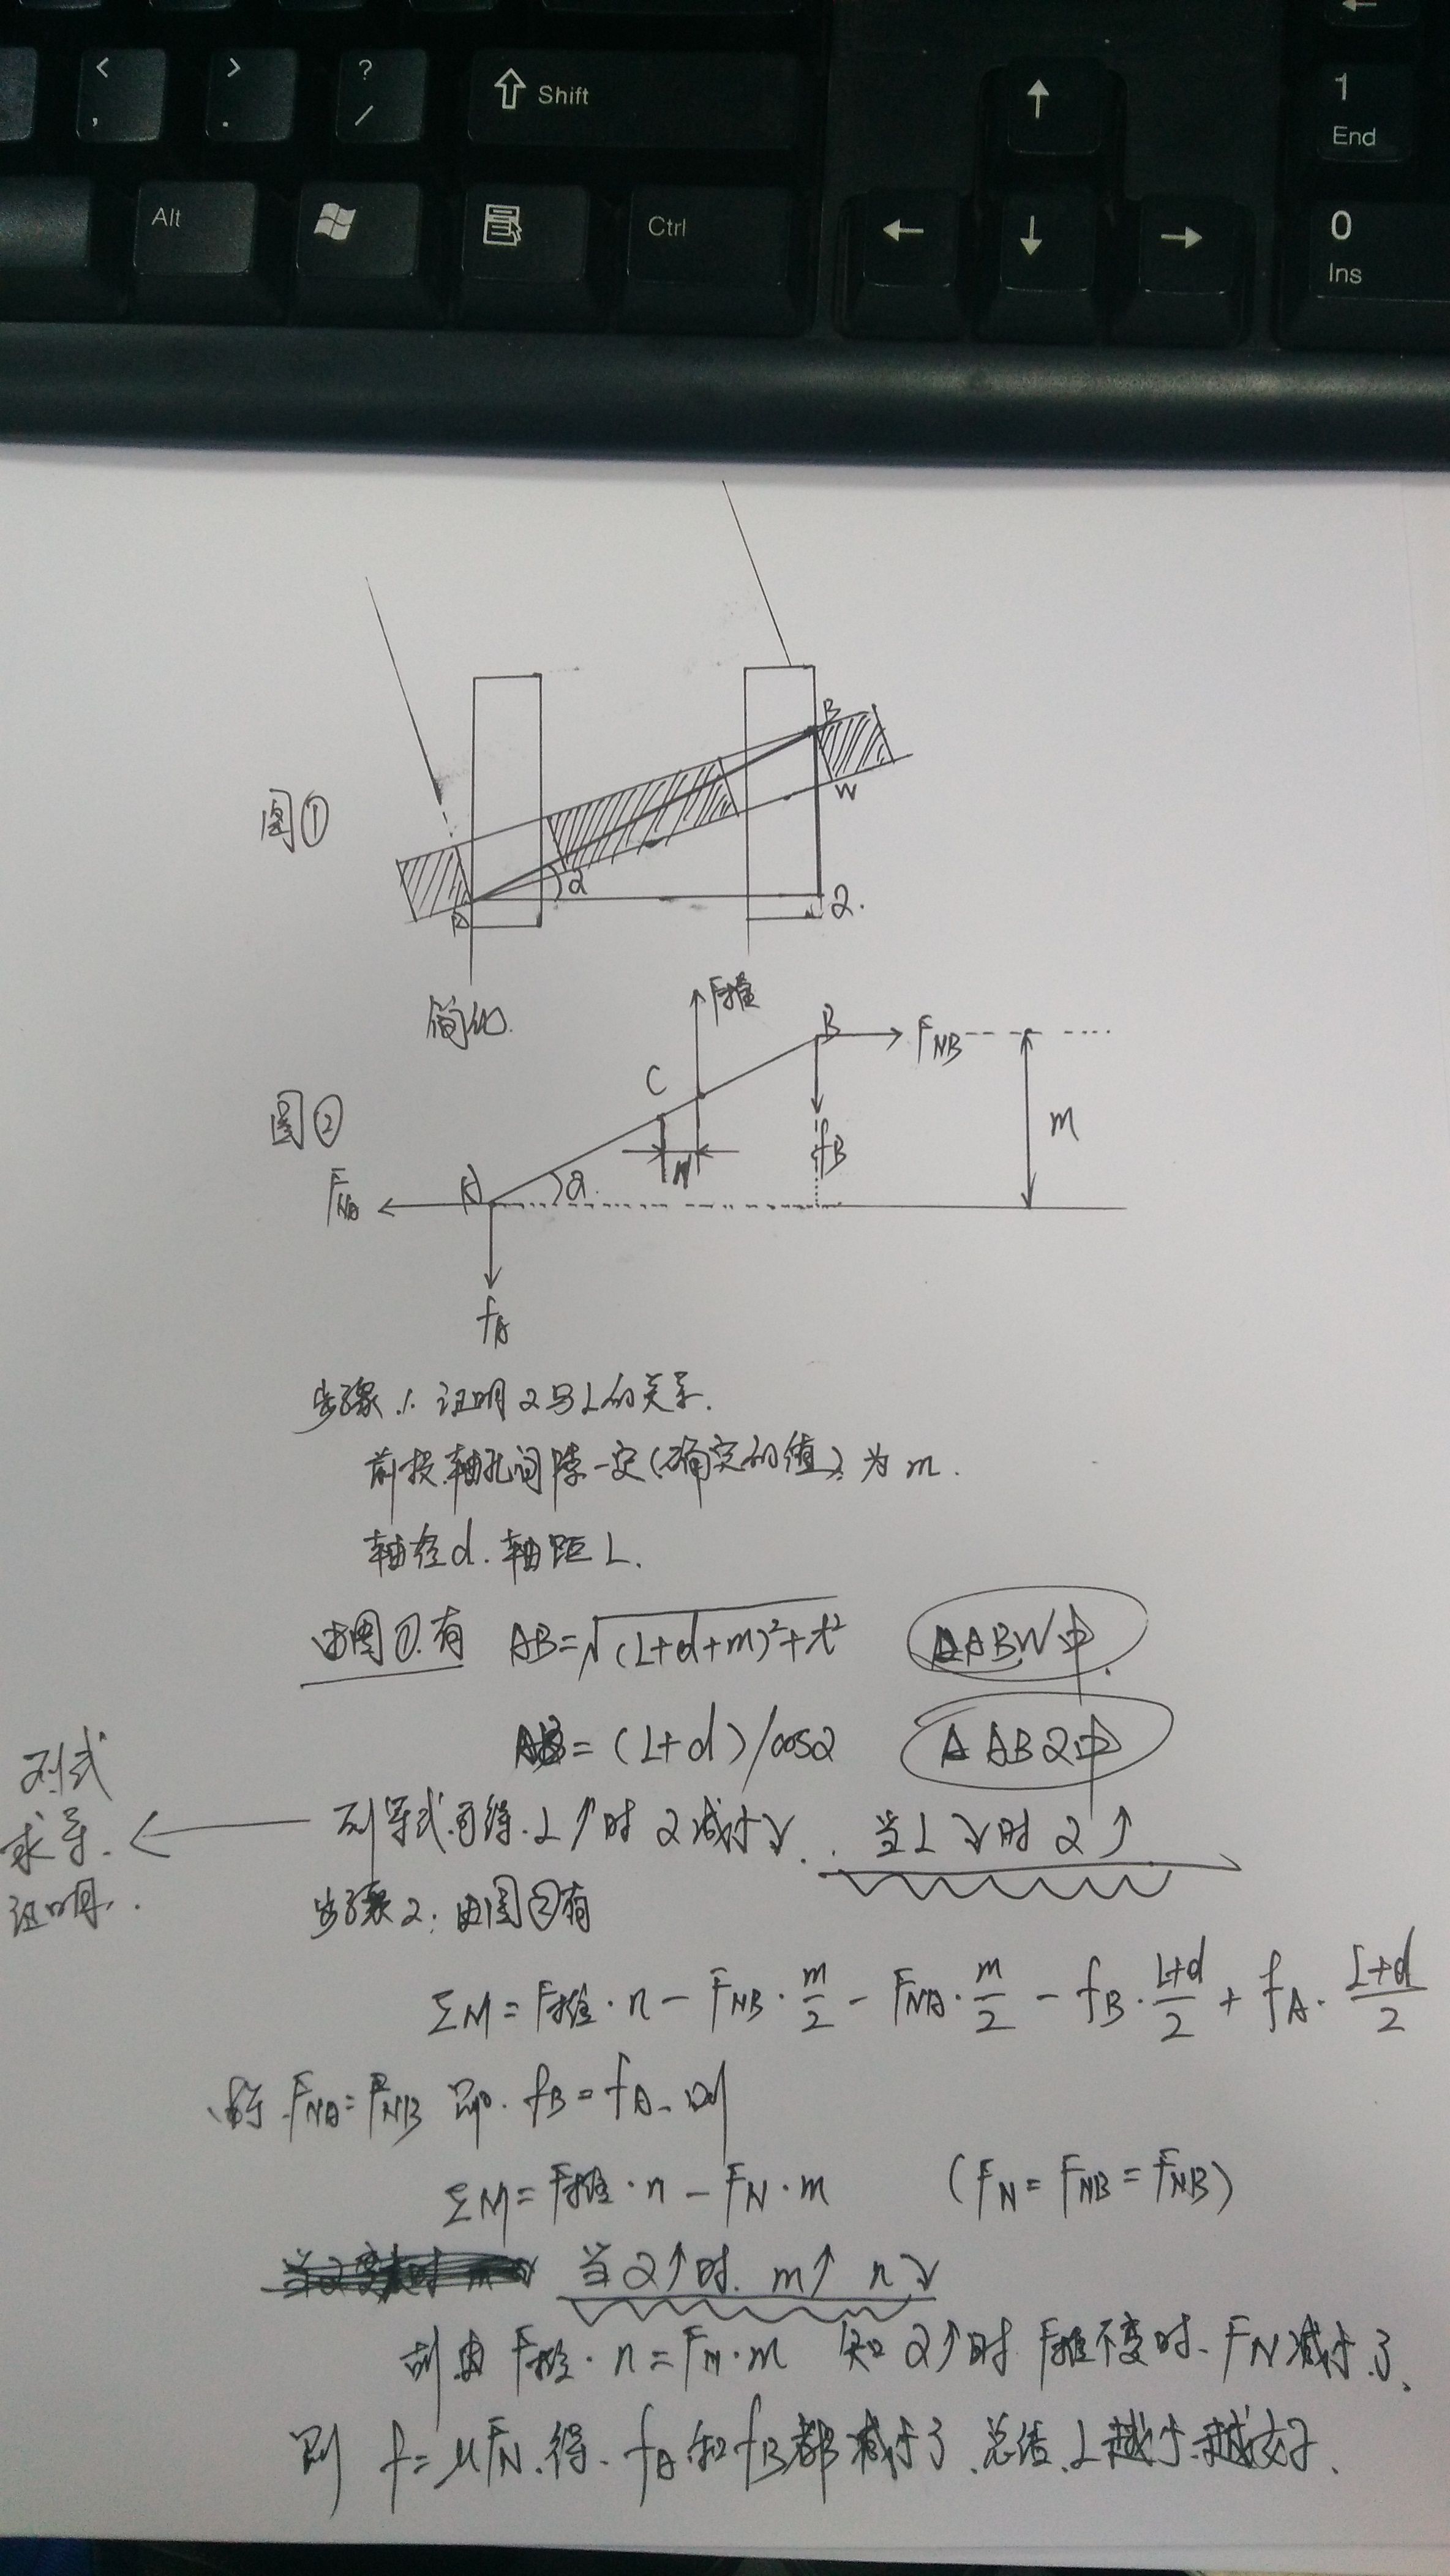 < , > . ? / Shift ↑ 1 End
Alt Ctrl ← ↓ → 0 Ins
图①
B
W
α
A
2.
简化.
F推
B
F_NB
C
图②
m
n
f_B
F_NA
A
α.
f_A
步骤1. 证明α与L的关系.
前提:轴孔间隙一定(确定的值),为m.
轴径d. 轴距L.
由图①.有 AB=√(L+d+m)²+t² △ABW中.
AB=(L+d)/cosα △AB2中
列等式可得.L↑时 α减小↘. 当L↘时 α↑
列式
求导.
证明.
步骤2: 由图②有
ΣM=F推·n-F_NB·m/2-F_NA·m/2-f_B·(L+d)/2+f_A·(L+d)/2
F_NA=F_NB 即. f_B=f_A. 则
ΣM=F推·n-F_N·m (F_N=F_NB=F_NB)
当α↑时. m↑ n↘
则由F推·n=F_N·m 知α↑时 F推不变时. F_N减小了.
则 f=μF_N.得. f_A和f_B都减小了.总结.L越小.越好.